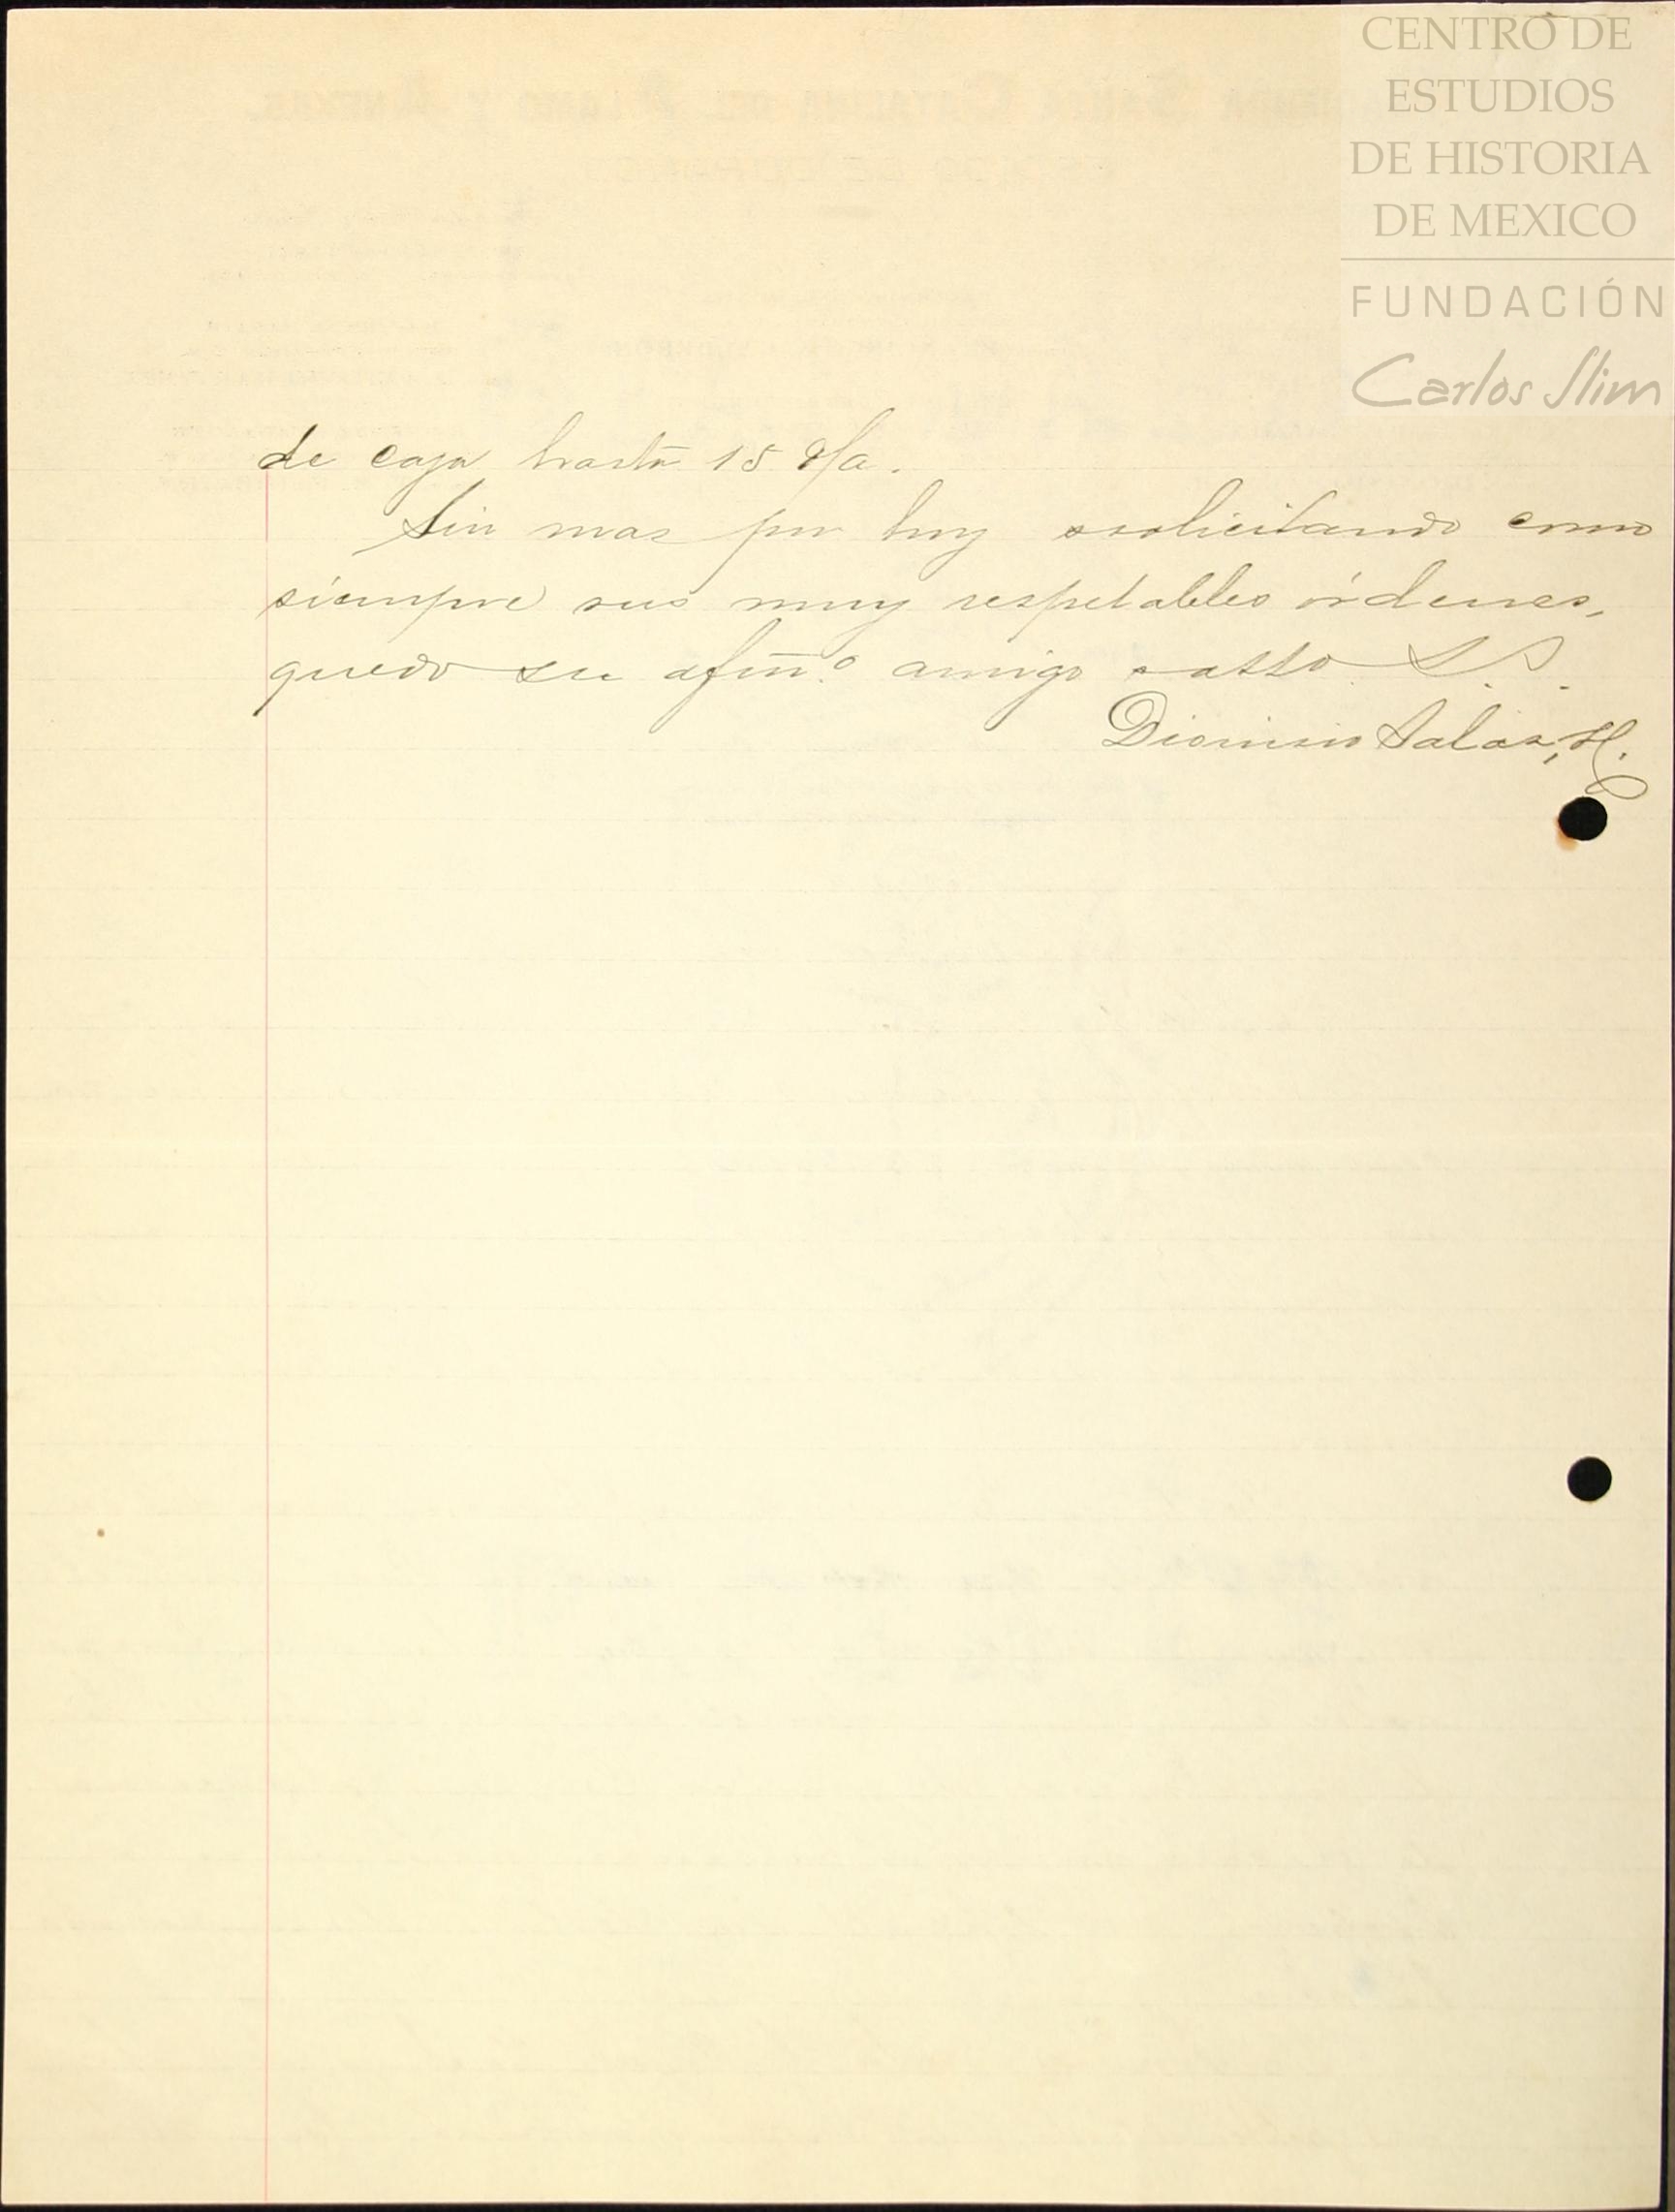 CENTRO DE
ESTUDIOS
DE HISTORIA
DE MEXICO
FUNDACIÓN
Carlos Slim
de caja hasta 15 d/a.
Sin mas por hoy solicitando como
siempre sus muy respetables órdenes,
quedo su afmo. amigo atto S.S.
Dionisio Salas, H.